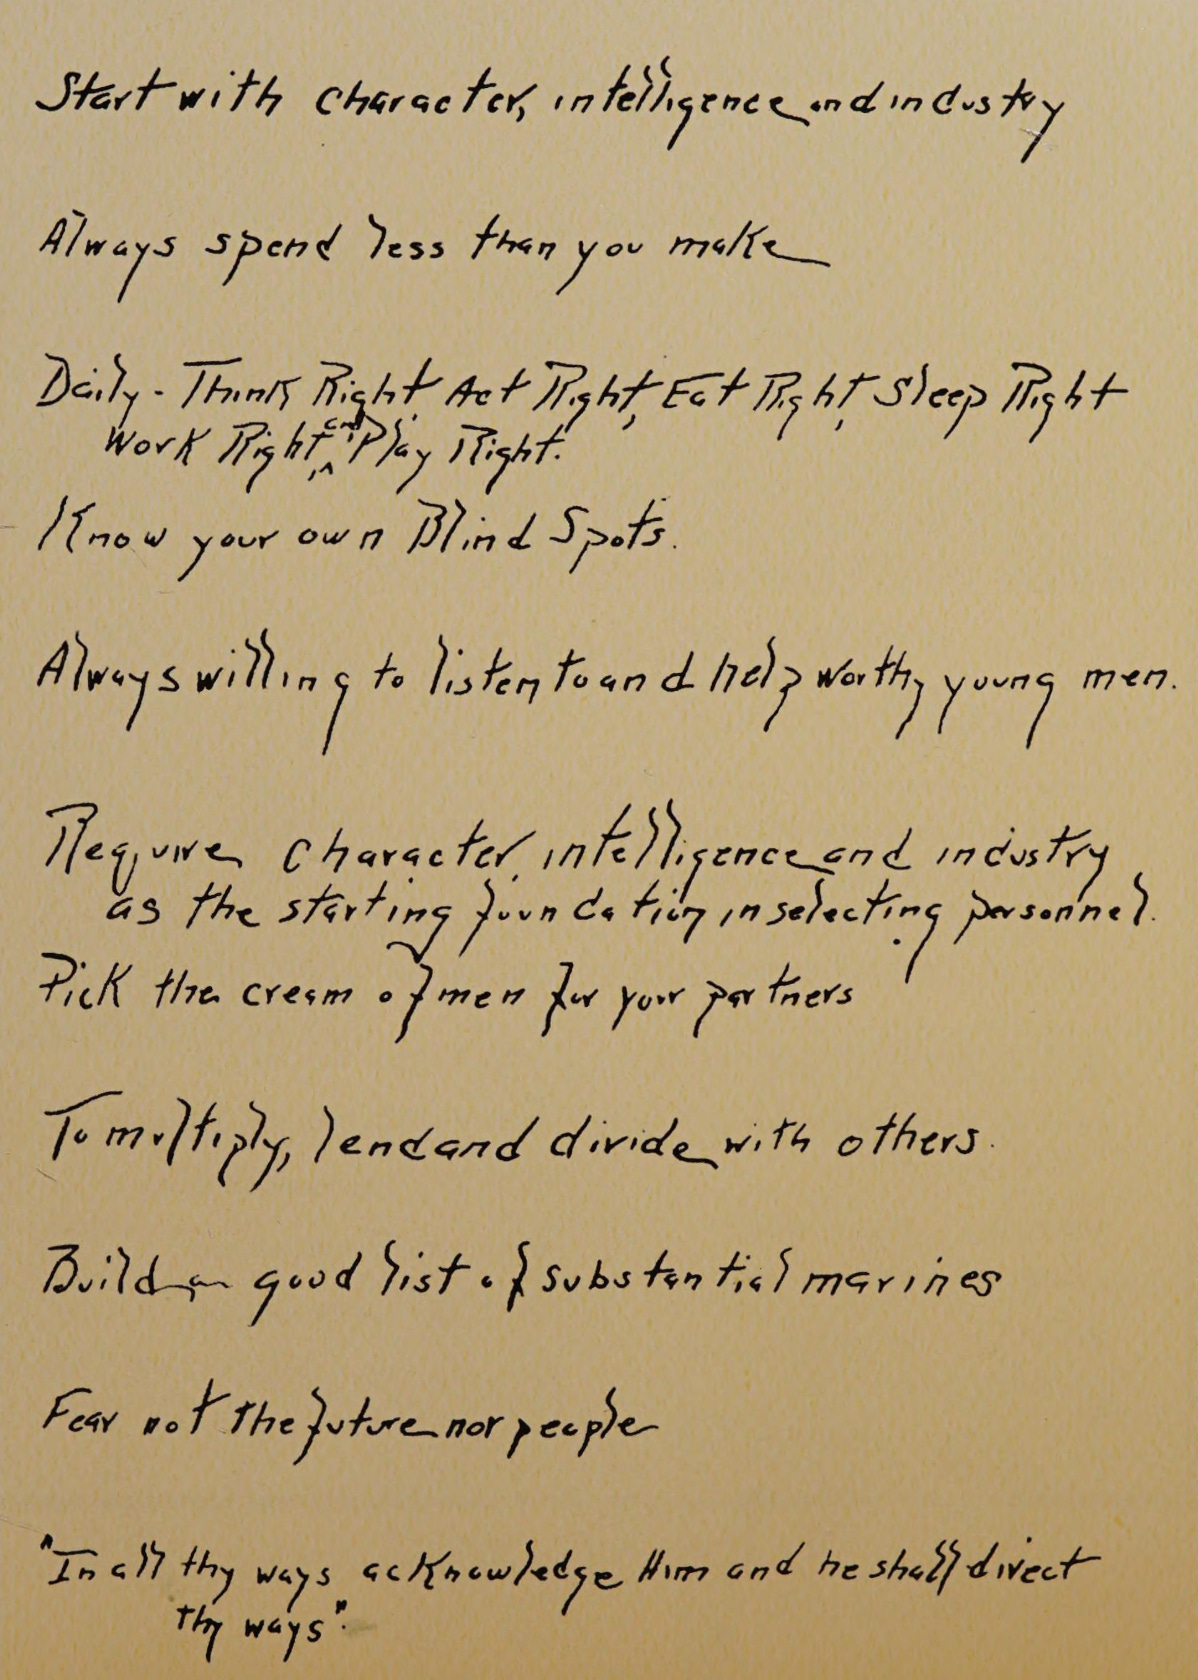 Start with character, intelligence and industry
Always spend less than you make
Daily - Think Right, Act Right, Eat Right, Sleep Right
Work Right, and Play Right.
Know your own Blind Spots.
Always willing to listen to and help worthy young men.
Require character, intelligence and industry
as the starting foundation in selecting personnel.
Pick the cream of men for your partners
To multiply, lend and divide with others.
Build a good list of substantial marines
Fear not the future nor people
"In all thy ways acknowledge Him and he shall direct
thy ways".